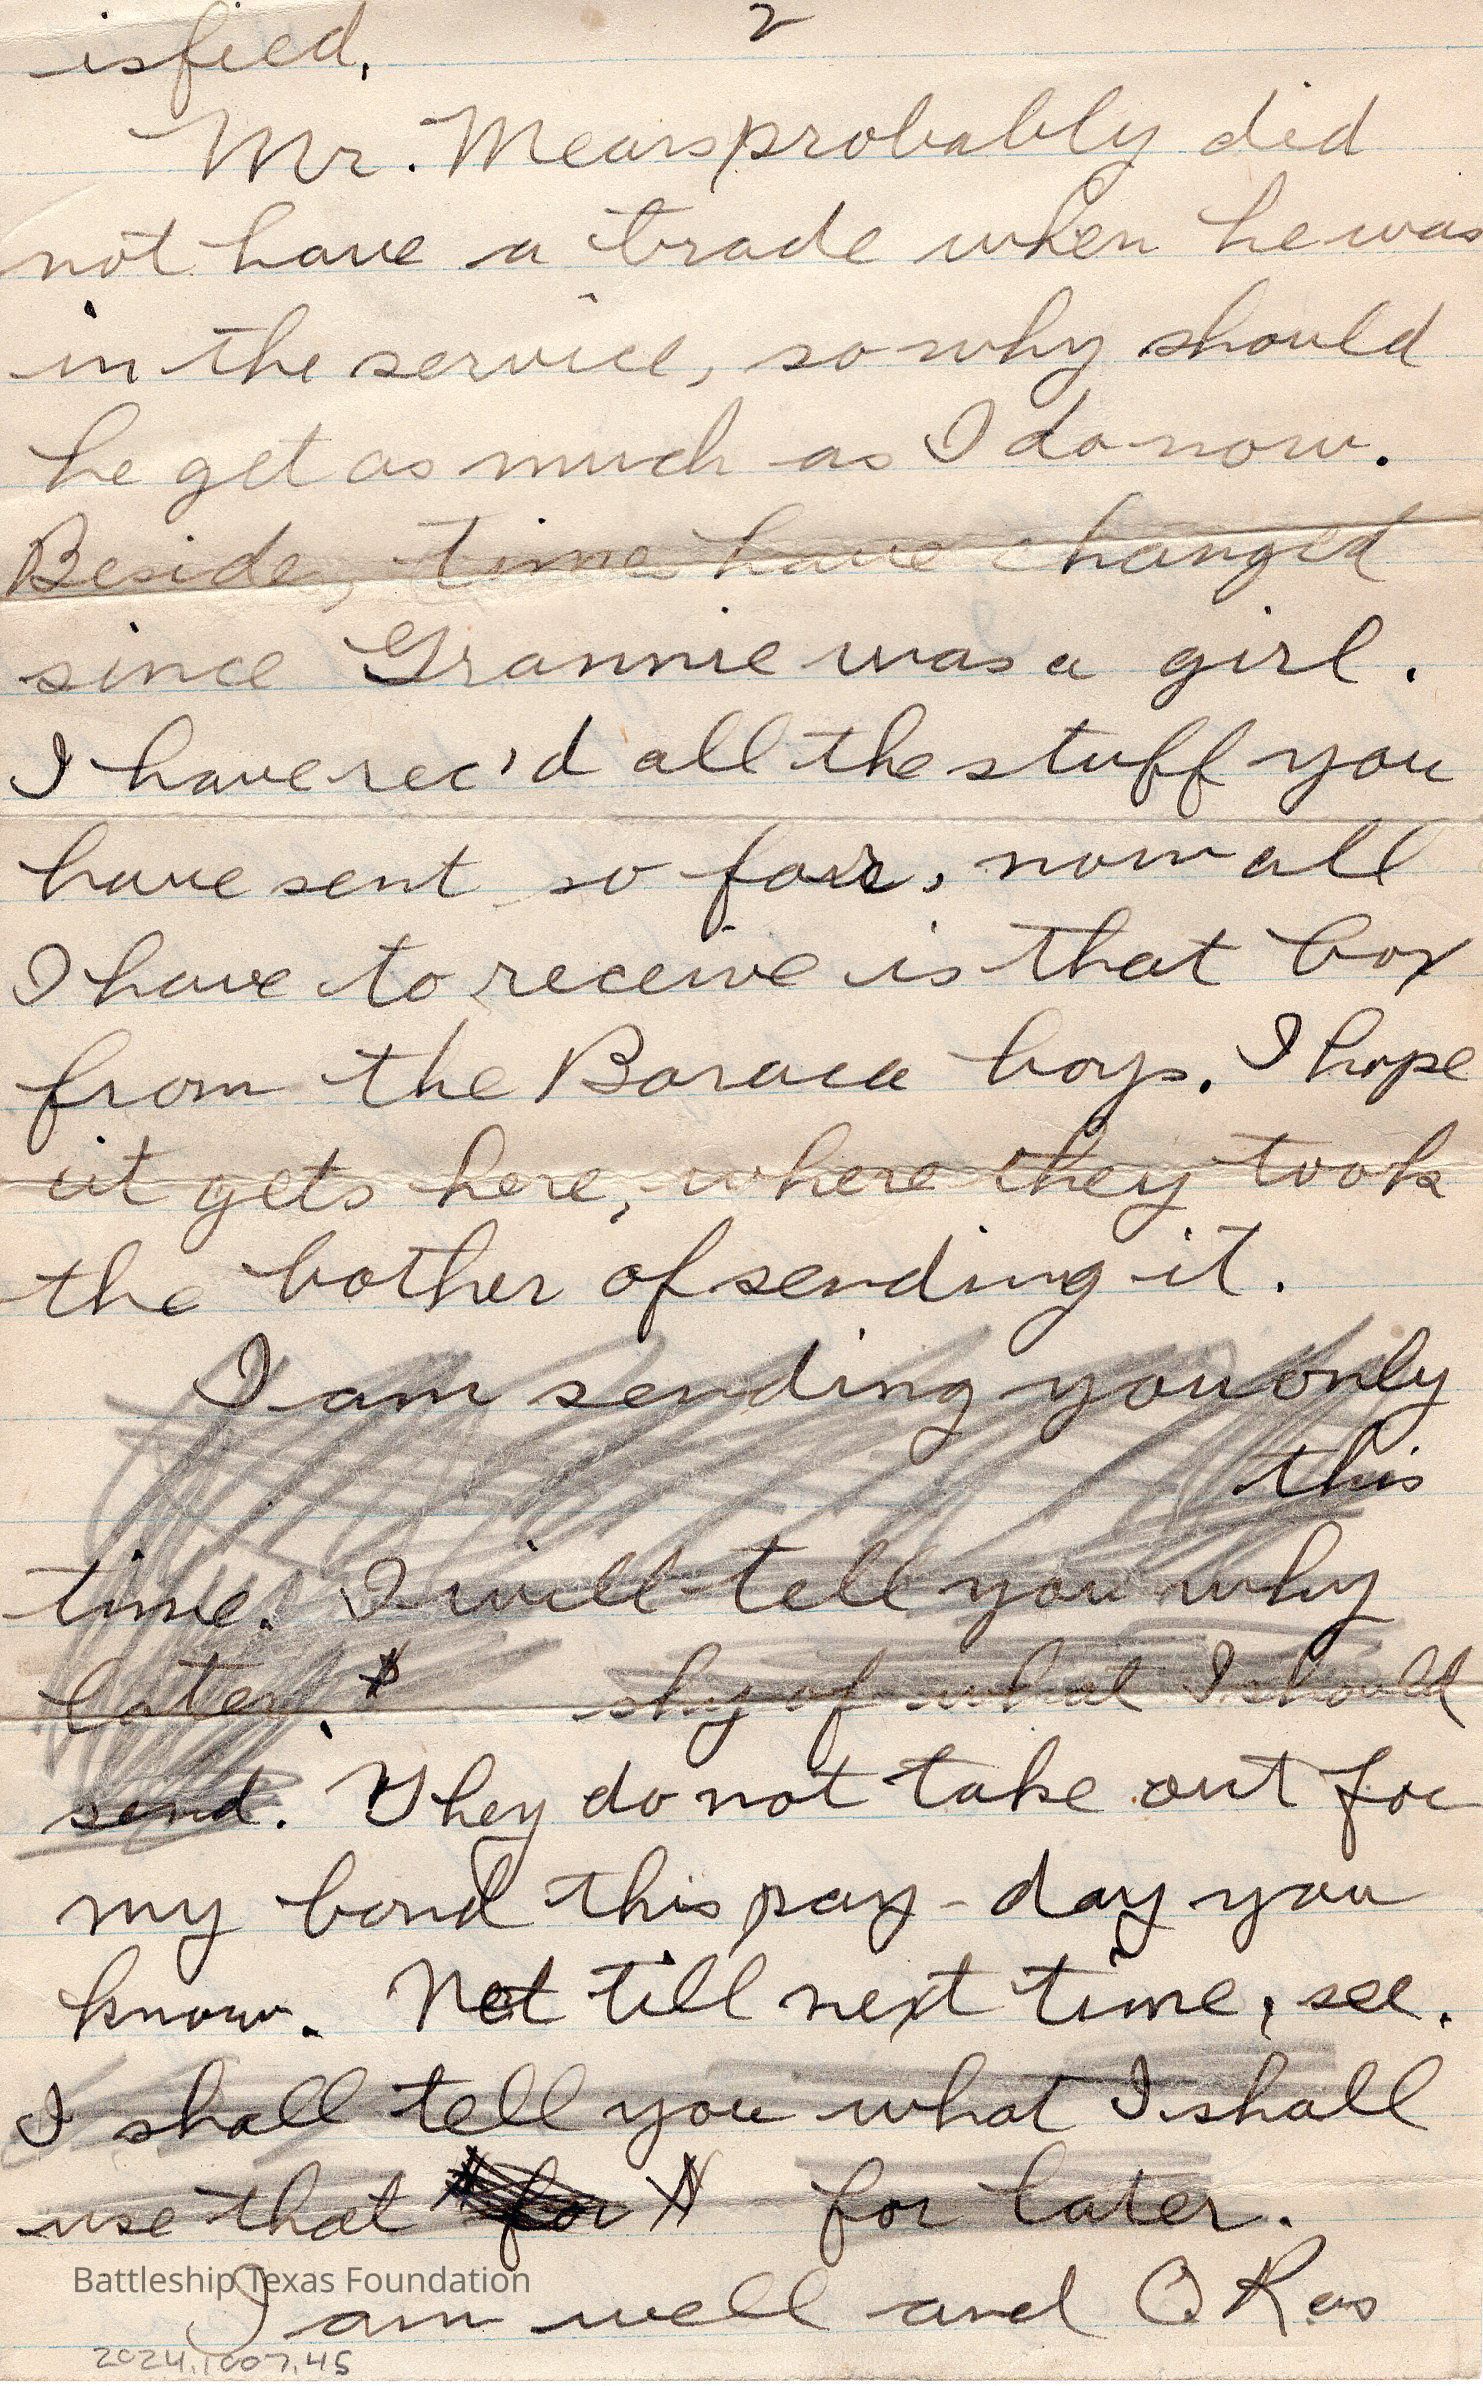 2
isfied.
Mr. Mears probably did
not have a trade when he was
in the service, so why should
he get as much as I do now.
Beside, times have changed
since Grannie was a girl.
I have rec'd all the stuff you
have sent so far, now all
I have to receive is that box
from the Baraca boys. I hope
it gets here, where they took
the bother of sending it.
I am sending you only
this
time. I will tell you why
later. $ shy of what I should
send. They do not take out for
my bond this pay-day you
know. Not till next time, see.
I shall tell you what I shall
use that for $ for later.
Battleship Texas Foundation
I am well and O.K. as
2024.1007.45